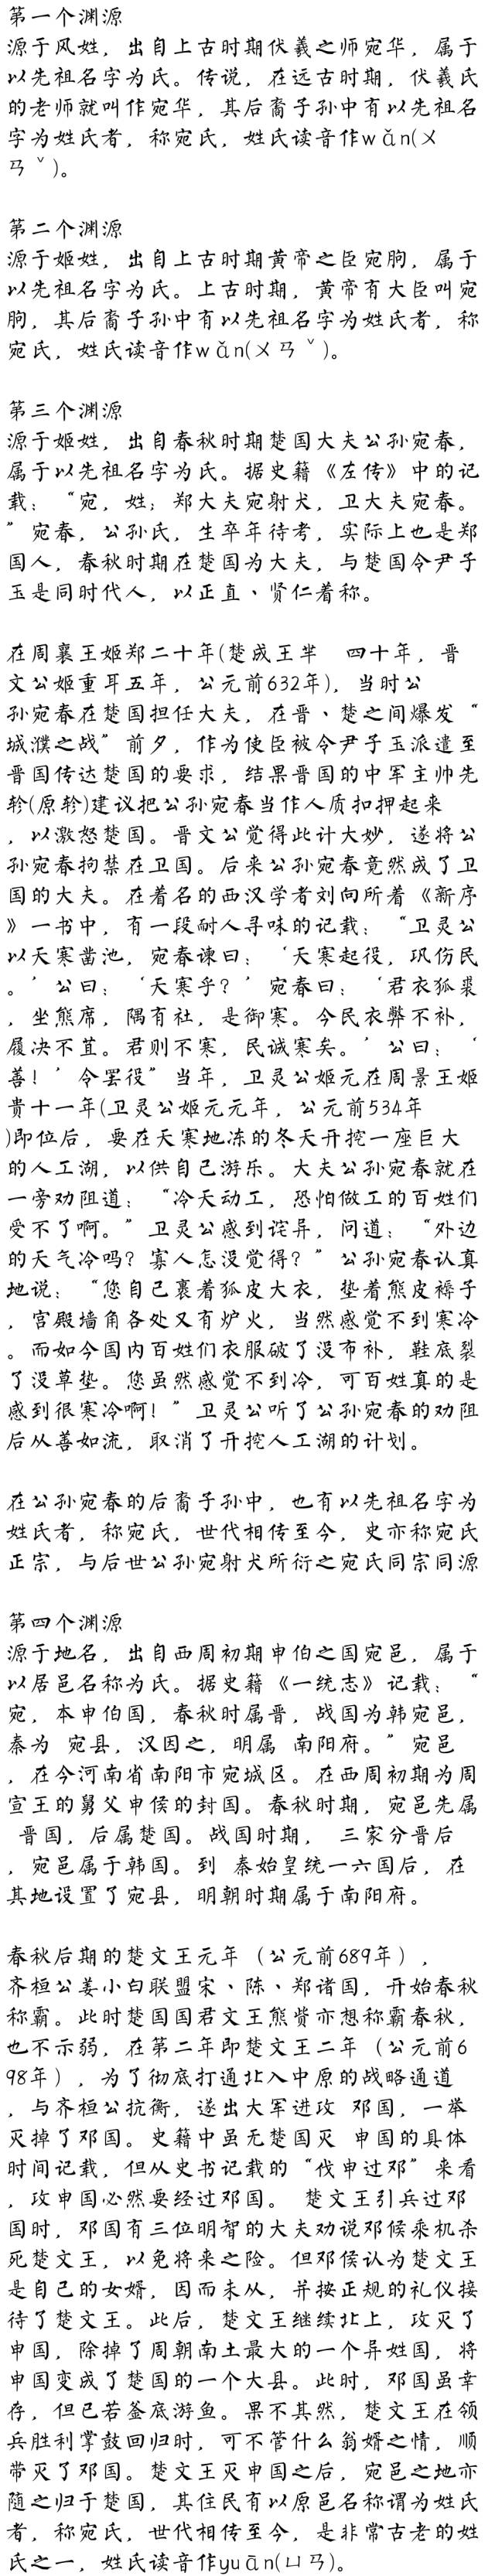 第一个渊源
源于风姓，出自上古时期伏羲之师宛华，属于
以先祖名字为氏。传说，在远古时期，伏羲氏
的老师就叫作宛华，其后裔子孙中有以先祖名
字为姓氏者，称宛氏，姓氏读音作wǎn(ㄨ
ㄢˇ)。
第二个渊源
源于姬姓，出自上古时期黄帝之臣宛朐，属于
以先祖名字为氏。上古时期，黄帝有大臣叫宛
朐，其后裔子孙中有以先祖名字为姓氏者，称
宛氏，姓氏读音作wǎn(ㄨㄢˇ)。
第三个渊源
源于姬姓，出自春秋时期楚国大夫公孙宛春，
属于以先祖名字为氏。据史籍《左传》中的记
载：“宛，姓；郑大夫宛射犬，卫大夫宛春。
”宛春，公孙氏，生卒年待考，实际上也是郑
国人，春秋时期在楚国为大夫，与楚国令尹子
玉是同时代人，以正直、贤仁着称。
在周襄王姬郑二十年(楚成王芈　四十年，晋
文公姬重耳五年，公元前632年)，当时公
孙宛春在楚国担任大夫，在晋、楚之间爆发“
城濮之战”前夕，作为使臣被令尹子玉派遣至
晋国传达楚国的要求，结果晋国的中军主帅先
轸(原轸)建议把公孙宛春当作人质扣押起来
，以激怒楚国。晋文公觉得此计大妙，遂将公
孙宛春拘禁在卫国。后来公孙宛春竟然成了卫
国的大夫。在着名的西汉学者刘向所着《新序
》一书中，有一段耐人寻味的记载：“卫灵公
以天寒凿池，宛春谏曰：‘天寒起役，巩伤民
。’公曰：‘天寒乎？’宛春曰：‘君衣狐裘
，坐熊席，隅有社，是御寒。今民衣弊不补，
履决不苴。君则不寒，民诚寒矣。’公曰：‘
善！’令罢役”当年，卫灵公姬元在周景王姬
贵十一年(卫灵公姬元元年，公元前534年
)即位后，要在天寒地冻的冬天开挖一座巨大
的人工湖，以供自己游乐。大夫公孙宛春就在
一旁劝阻道：“冷天动工，恐怕做工的百姓们
受不了啊。”卫灵公感到诧异，问道：“外边
的天气冷吗？寡人怎没觉得？”公孙宛春认真
地说：“您自己裹着狐皮大衣，垫着熊皮褥子
，宫殿墙角各处又有炉火，当然感觉不到寒冷
。而如今国内百姓们衣服破了没布补，鞋底裂
了没草垫。您虽然感觉不到冷，可百姓真的是
感到很寒冷啊！”卫灵公听了公孙宛春的劝阻
后从善如流，取消了开挖人工湖的计划。
在公孙宛春的后裔子孙中，也有以先祖名字为
姓氏者，称宛氏，世代相传至今，史亦称宛氏
正宗，与后世公孙宛射犬所衍之宛氏同宗同源
第四个渊源
源于地名，出自西周初期申伯之国宛邑，属于
以居邑名称为氏。据史籍《一统志》记载：“
宛，本申伯国，春秋时属晋，战国为韩宛邑，
秦为 宛县，汉因之，明属 南阳府。”宛邑
，在今河南省南阳市宛城区。在西周初期为周
宣王的舅父申侯的封国。春秋时期，宛邑先属
 晋国，后属楚国。战国时期， 三家分晋后
，宛邑属于韩国。到 秦始皇统一六国后，在
其地设置了宛县，明朝时期属于南阳府。
春秋后期的楚文王元年（公元前689年），
齐桓公姜小白联盟宋、陈、郑诸国，开始春秋
称霸。此时楚国国君文王熊赀亦想称霸春秋，
也不示弱，在第二年即楚文王二年（公元前6
98年），为了彻底打通北入中原的战略通道
，与齐桓公抗衡，遂出大军进攻 邓国，一举
灭掉了邓国。史籍中虽无楚国灭 申国的具体
时间记载，但从史书记载的“伐申过邓”来看
，攻申国必然要经过邓国。 楚文王引兵过邓
国时，邓国有三位明智的大夫劝说邓候乘机杀
死楚文王，以免将来之险。但邓侯认为楚文王
是自己的女婿，因而未从，并按正规的礼仪接
待了楚文王。此后，楚文王继续北上，攻灭了
申国，除掉了周朝南土最大的一个异姓国，将
申国变成了楚国的一个大县。此时，邓国虽幸
存，但已若釜底游鱼。果不其然，楚文王在领
兵胜利掌鼓回归时，可不管什么翁婿之情，顺
带灭了邓国。楚文王灭申国之后，宛邑之地亦
随之归于楚国，其住民有以原邑名称谓为姓氏
者，称宛氏，世代相传至今，是非常古老的姓
氏之一，姓氏读音作yuān(ㄩㄢ)。